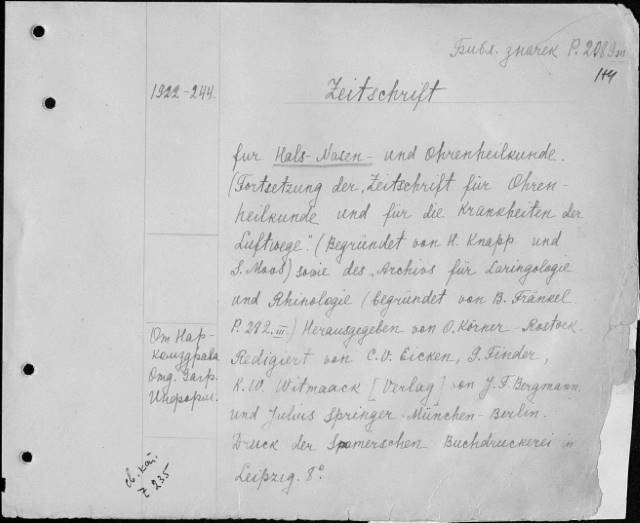 Библ. значек P. 2089 III
1922-244.
Zeitschrift
fur Hals- Nasen- und Ohrenheilkunde.
(Fortsetzung der „Zeitschrift für Ohren-
heilkunde und für die Krankheiten der
Luftwege". (Begründet von H. Knapp und
S. Moos) sowie des „Archivs für Laringologie
und Rhinologie (begründet von B. Fränkel
P. 282. III.) Herausgegeben von O. Körner - Rostock
Redigiert von C. V. Eicken, G. Finder,
K. W. Witmaack [Verlag] von J. F. Bergmann
und Julius Springer München-Berlin.
Druck der Spamerschen Buchdruckerei in
Leipzig. 8°.
От Нар-
комздрава
Отд. Загр.
Информ.
св. кат.
Z 235